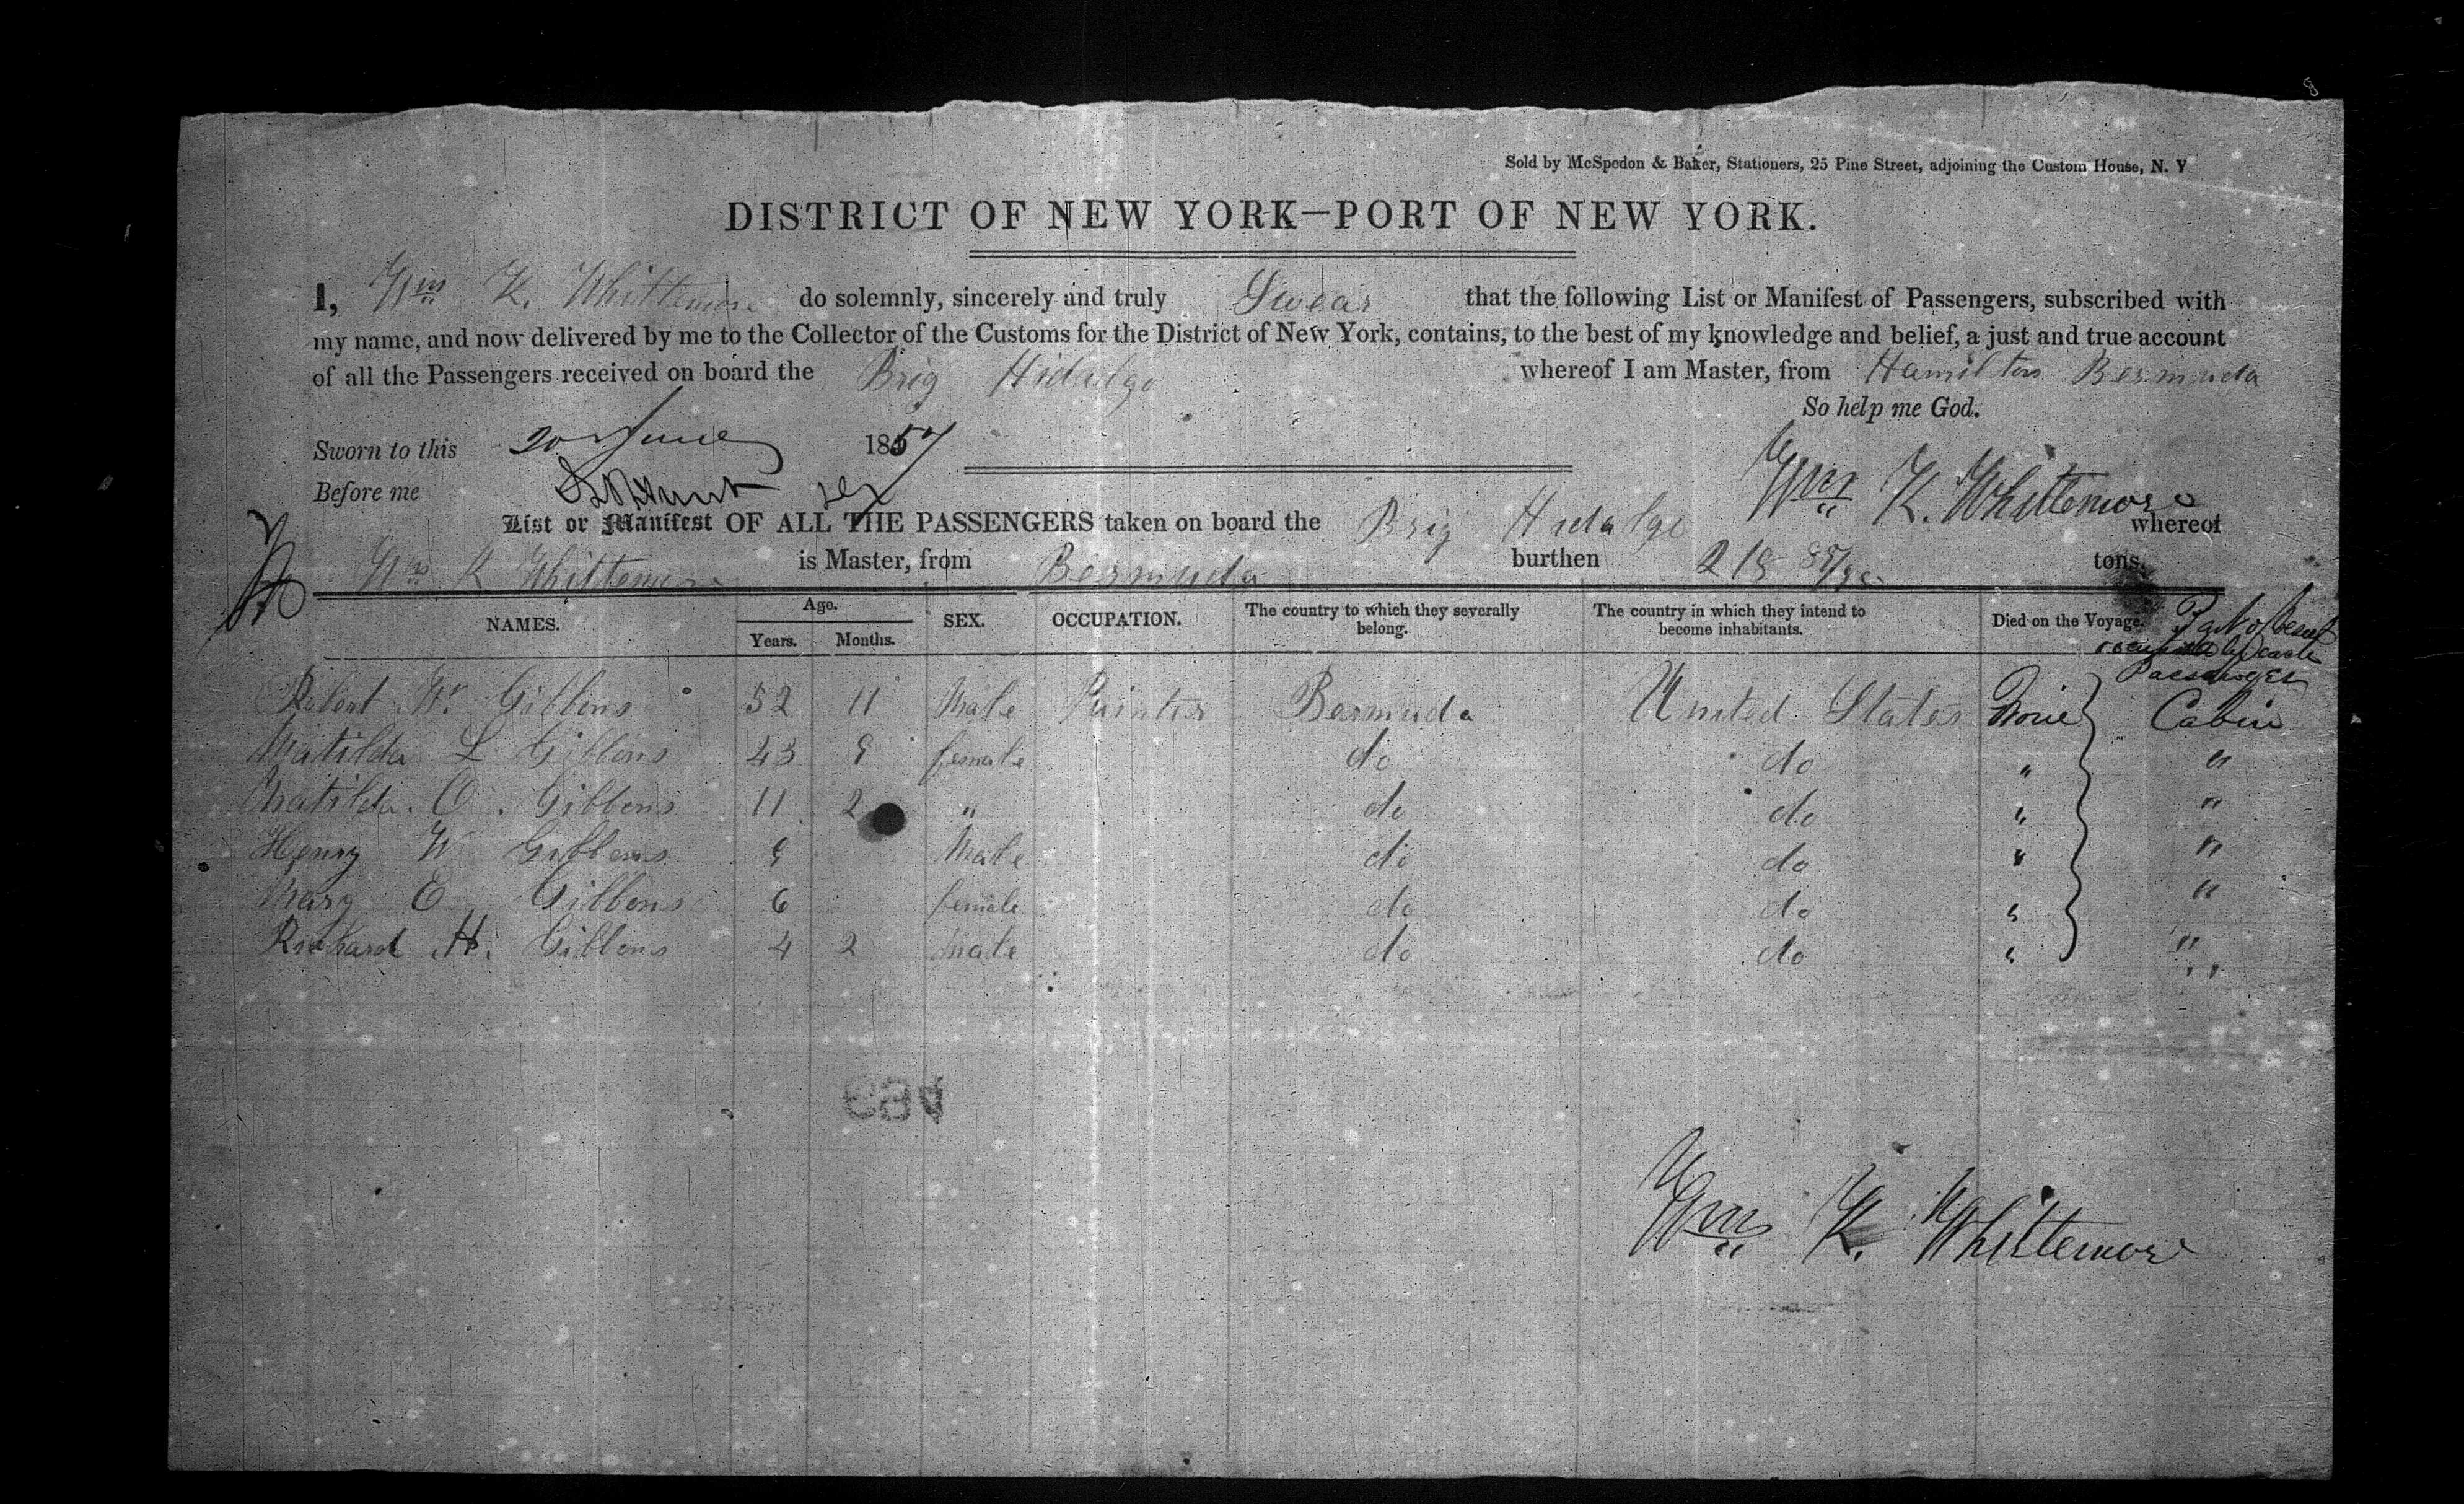 8
Sold by McSpedon & Baker, Stationers, 25 Pine Street, adjoining the Custom House, N. Y
DISTRICT OF NEW YORK—PORT OF NEW YORK.
I, Wm K. Whittemore do solemnly, sincerely and truly Swear that the following List or Manifest of Passengers, subscribed with
my name, and now delivered by me to the Collector of the Customs for the District of New York, contains, to the best of my knowledge and belief, a just and true account
of all the Passengers received on board the Brig Hidalgo whereof I am Master, from Hamilton Bermuda
So help me God.
Sworn to this 20 June 1857
Wm K. Whittemore
Before me
List or Manifest OF ALL THE PASSENGERS taken on board the Brig Hidalgo whereof
Wm K Whittemore is Master, from Bermuda burthen tons.
NAMES. Age. Years. Months. SEX. OCCUPATION. The country to which they severally belong. The country in which they intend to become inhabitants. Died on the Voyage. Part of Vessel occupied by each Passenger
Robert W. Gibbons 52 11 Male Painter Bermuda United States None Cabin
Matilda L Gibbons 43 9 female do do " "
Matilda. O. Gibbons 11 2 " do do " "
Henry W Gibbons 9 Male do do " "
Mary E Gibbons 6 female do do " "
Richard H. Gibbons 4 2 Male do do " "
Wm K. Whittemore